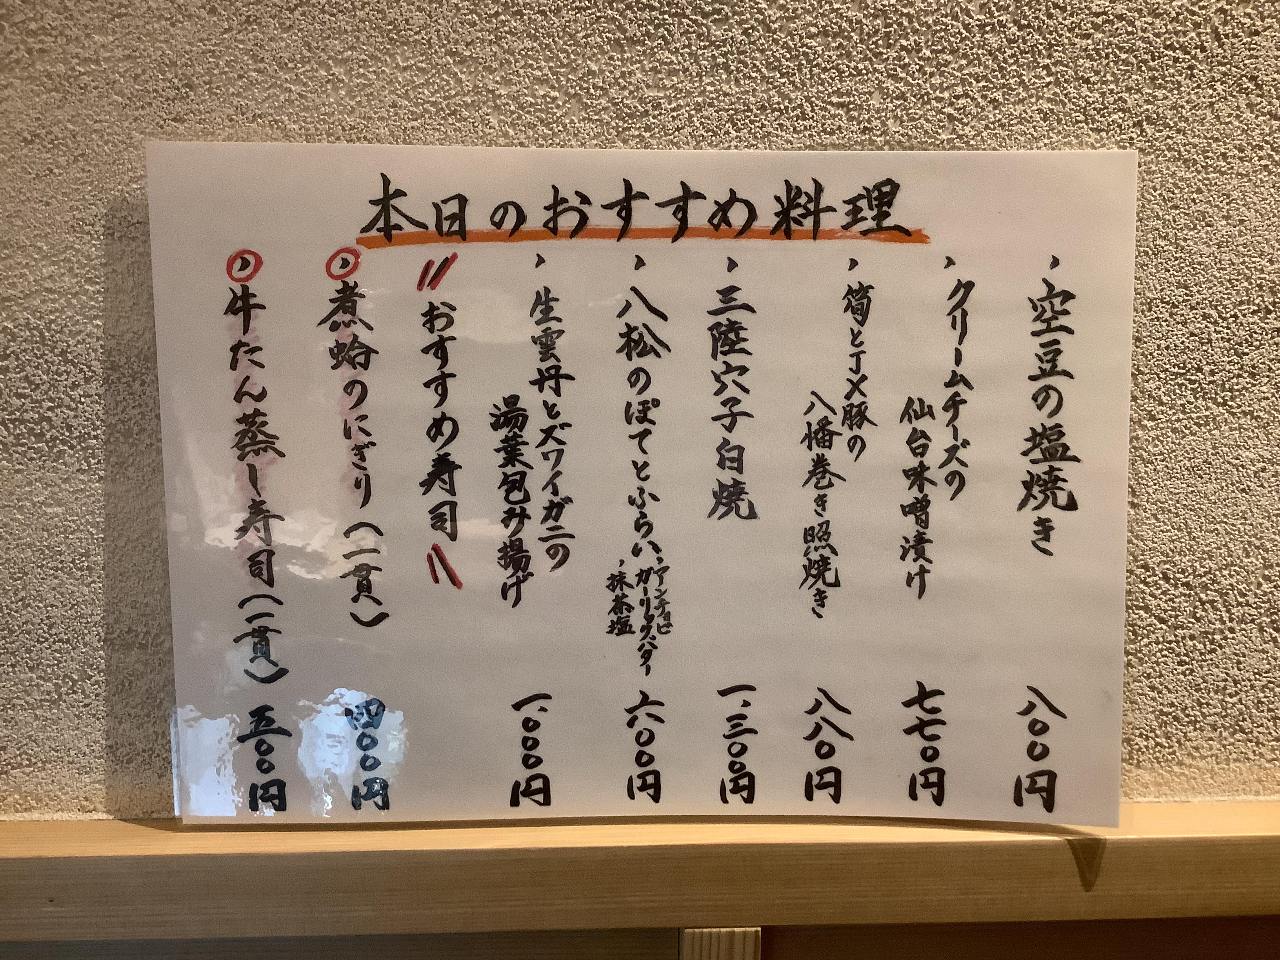 本日のおすすめ料理
、空豆の塩焼き 八〇〇円
、クリームチーズの
仙台味噌漬け 七七〇円
、筍とJX豚の
八幡巻き照焼き 八八〇円
、三陸穴子白焼 一、三〇〇円
、八松のぽてとふらい 六〇〇円
、アンチョビ
ガーリックバター
、抹茶塩
、生雲丹とズワイガニの
湯葉包み揚げ 一、〇〇〇円
〃おすすめ寿司〃
、煮蛤のにぎり(一貫) 四〇〇円
、牛たん蒸し寿司(一貫) 五〇〇円